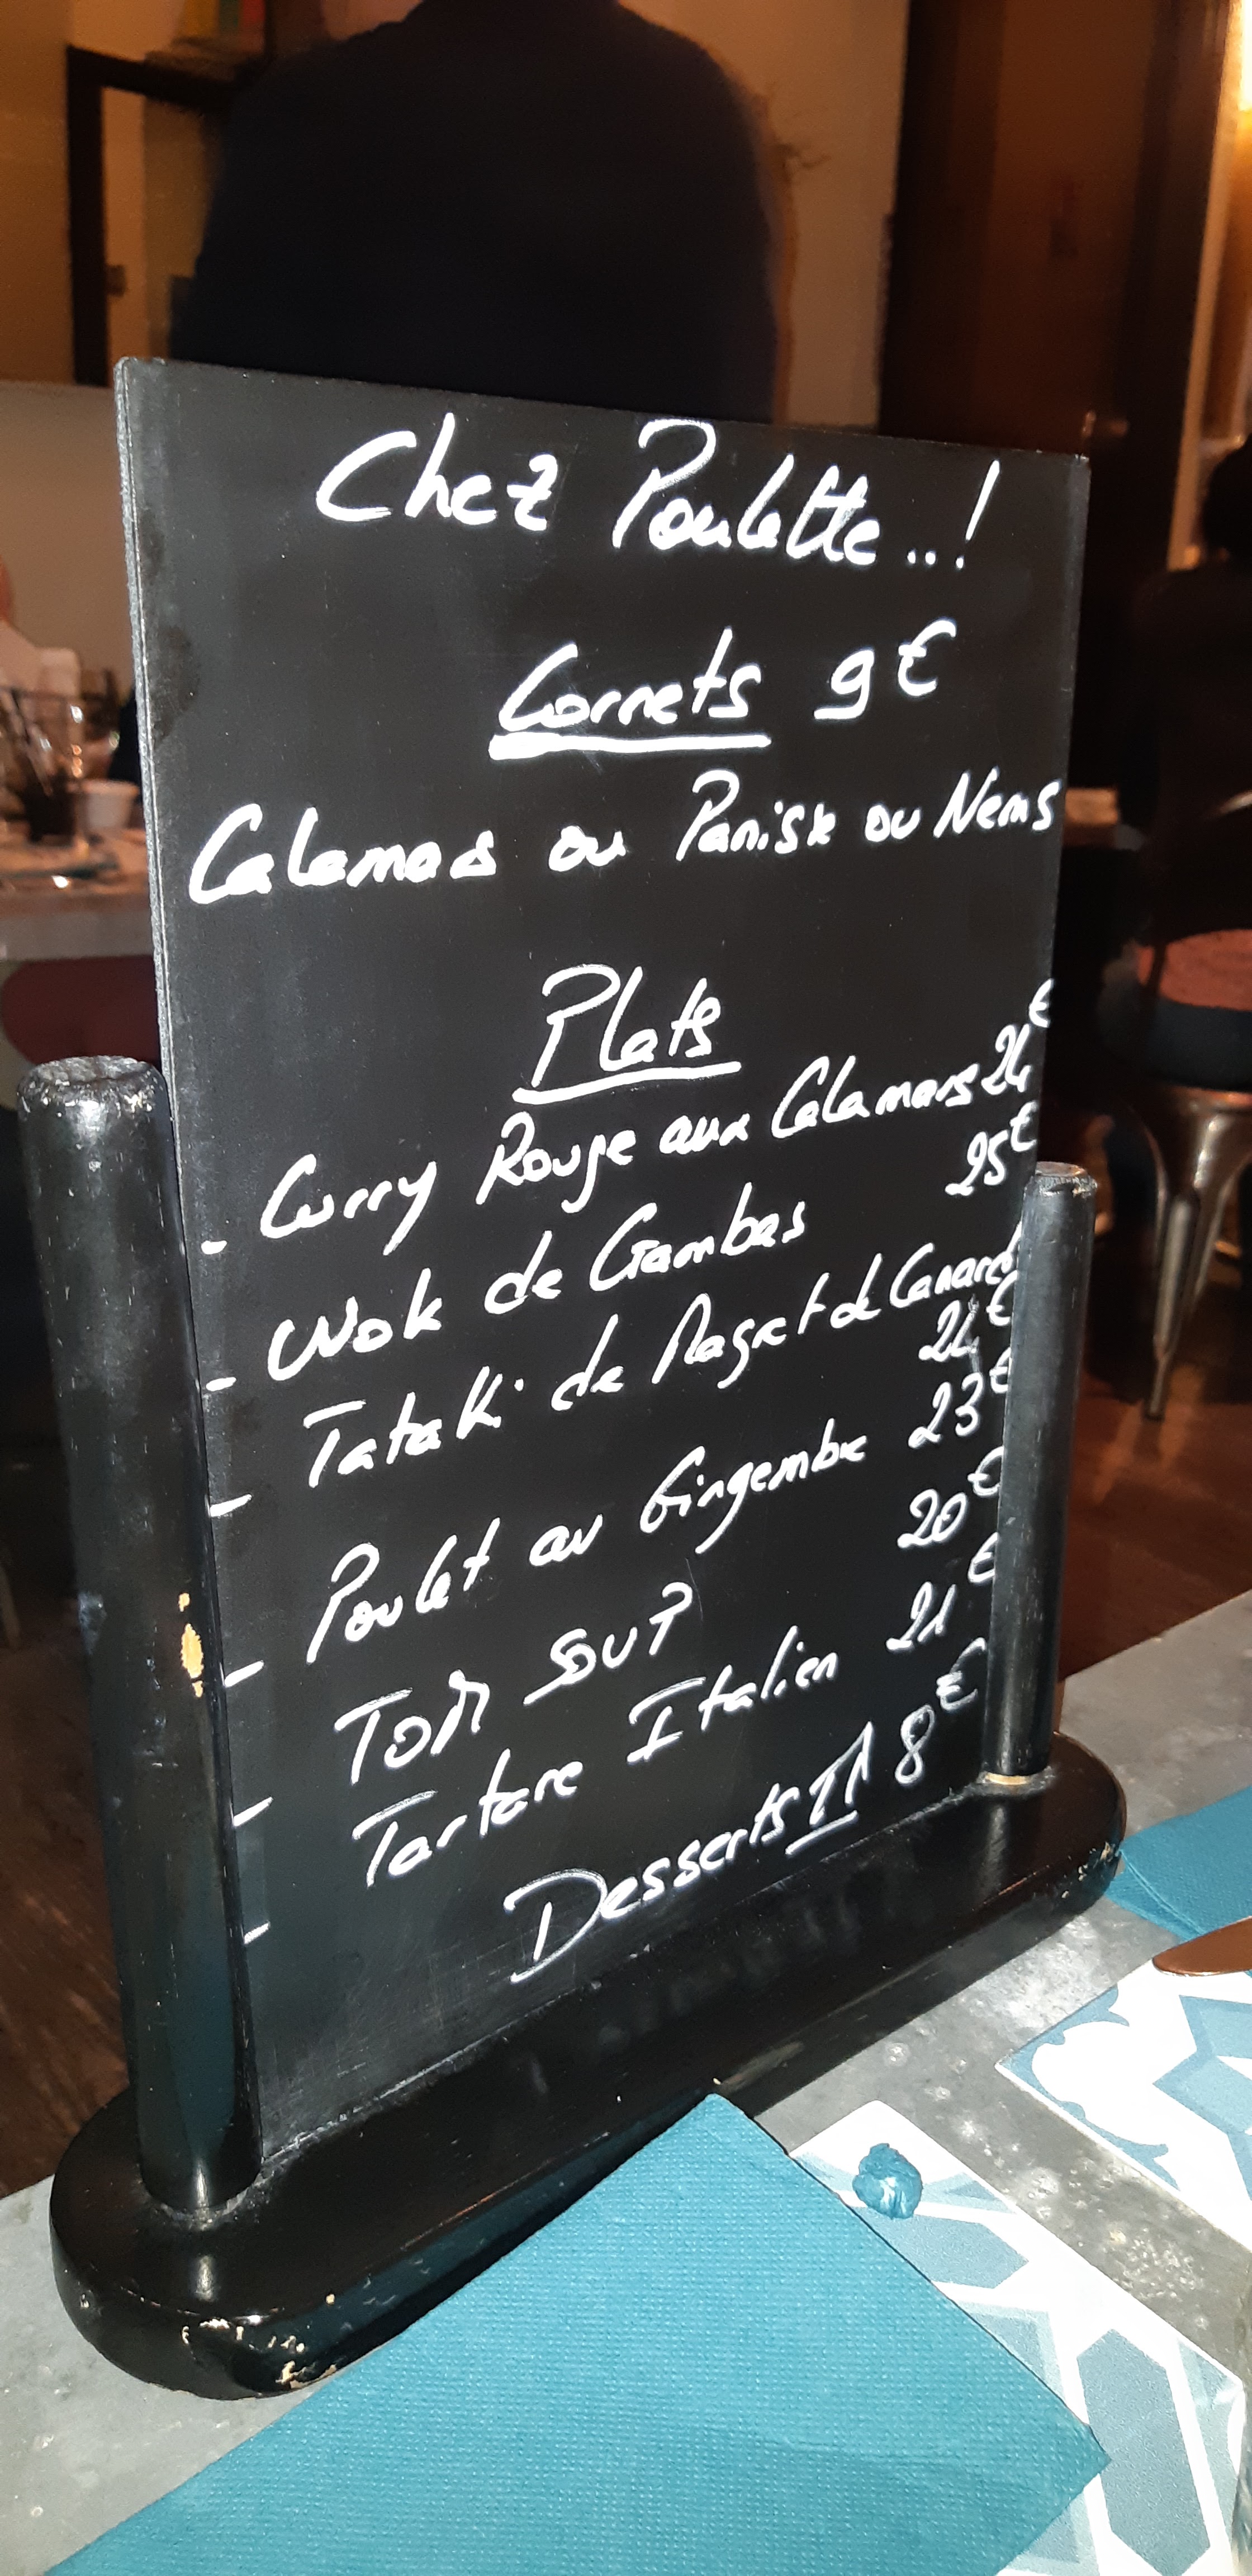 Chez Poulette..!
Cornets 9€
Calamars ou Panisse ou Nems
Plats
- Curry Rouge aux Calamars 24€
- Wok de Gambas 25€
- Tataki de Magret de Canard
24€
- Poulet au Gingembre 23€
- TOM SOUP 20€
- Tartare Italien 21€
Desserts 8€